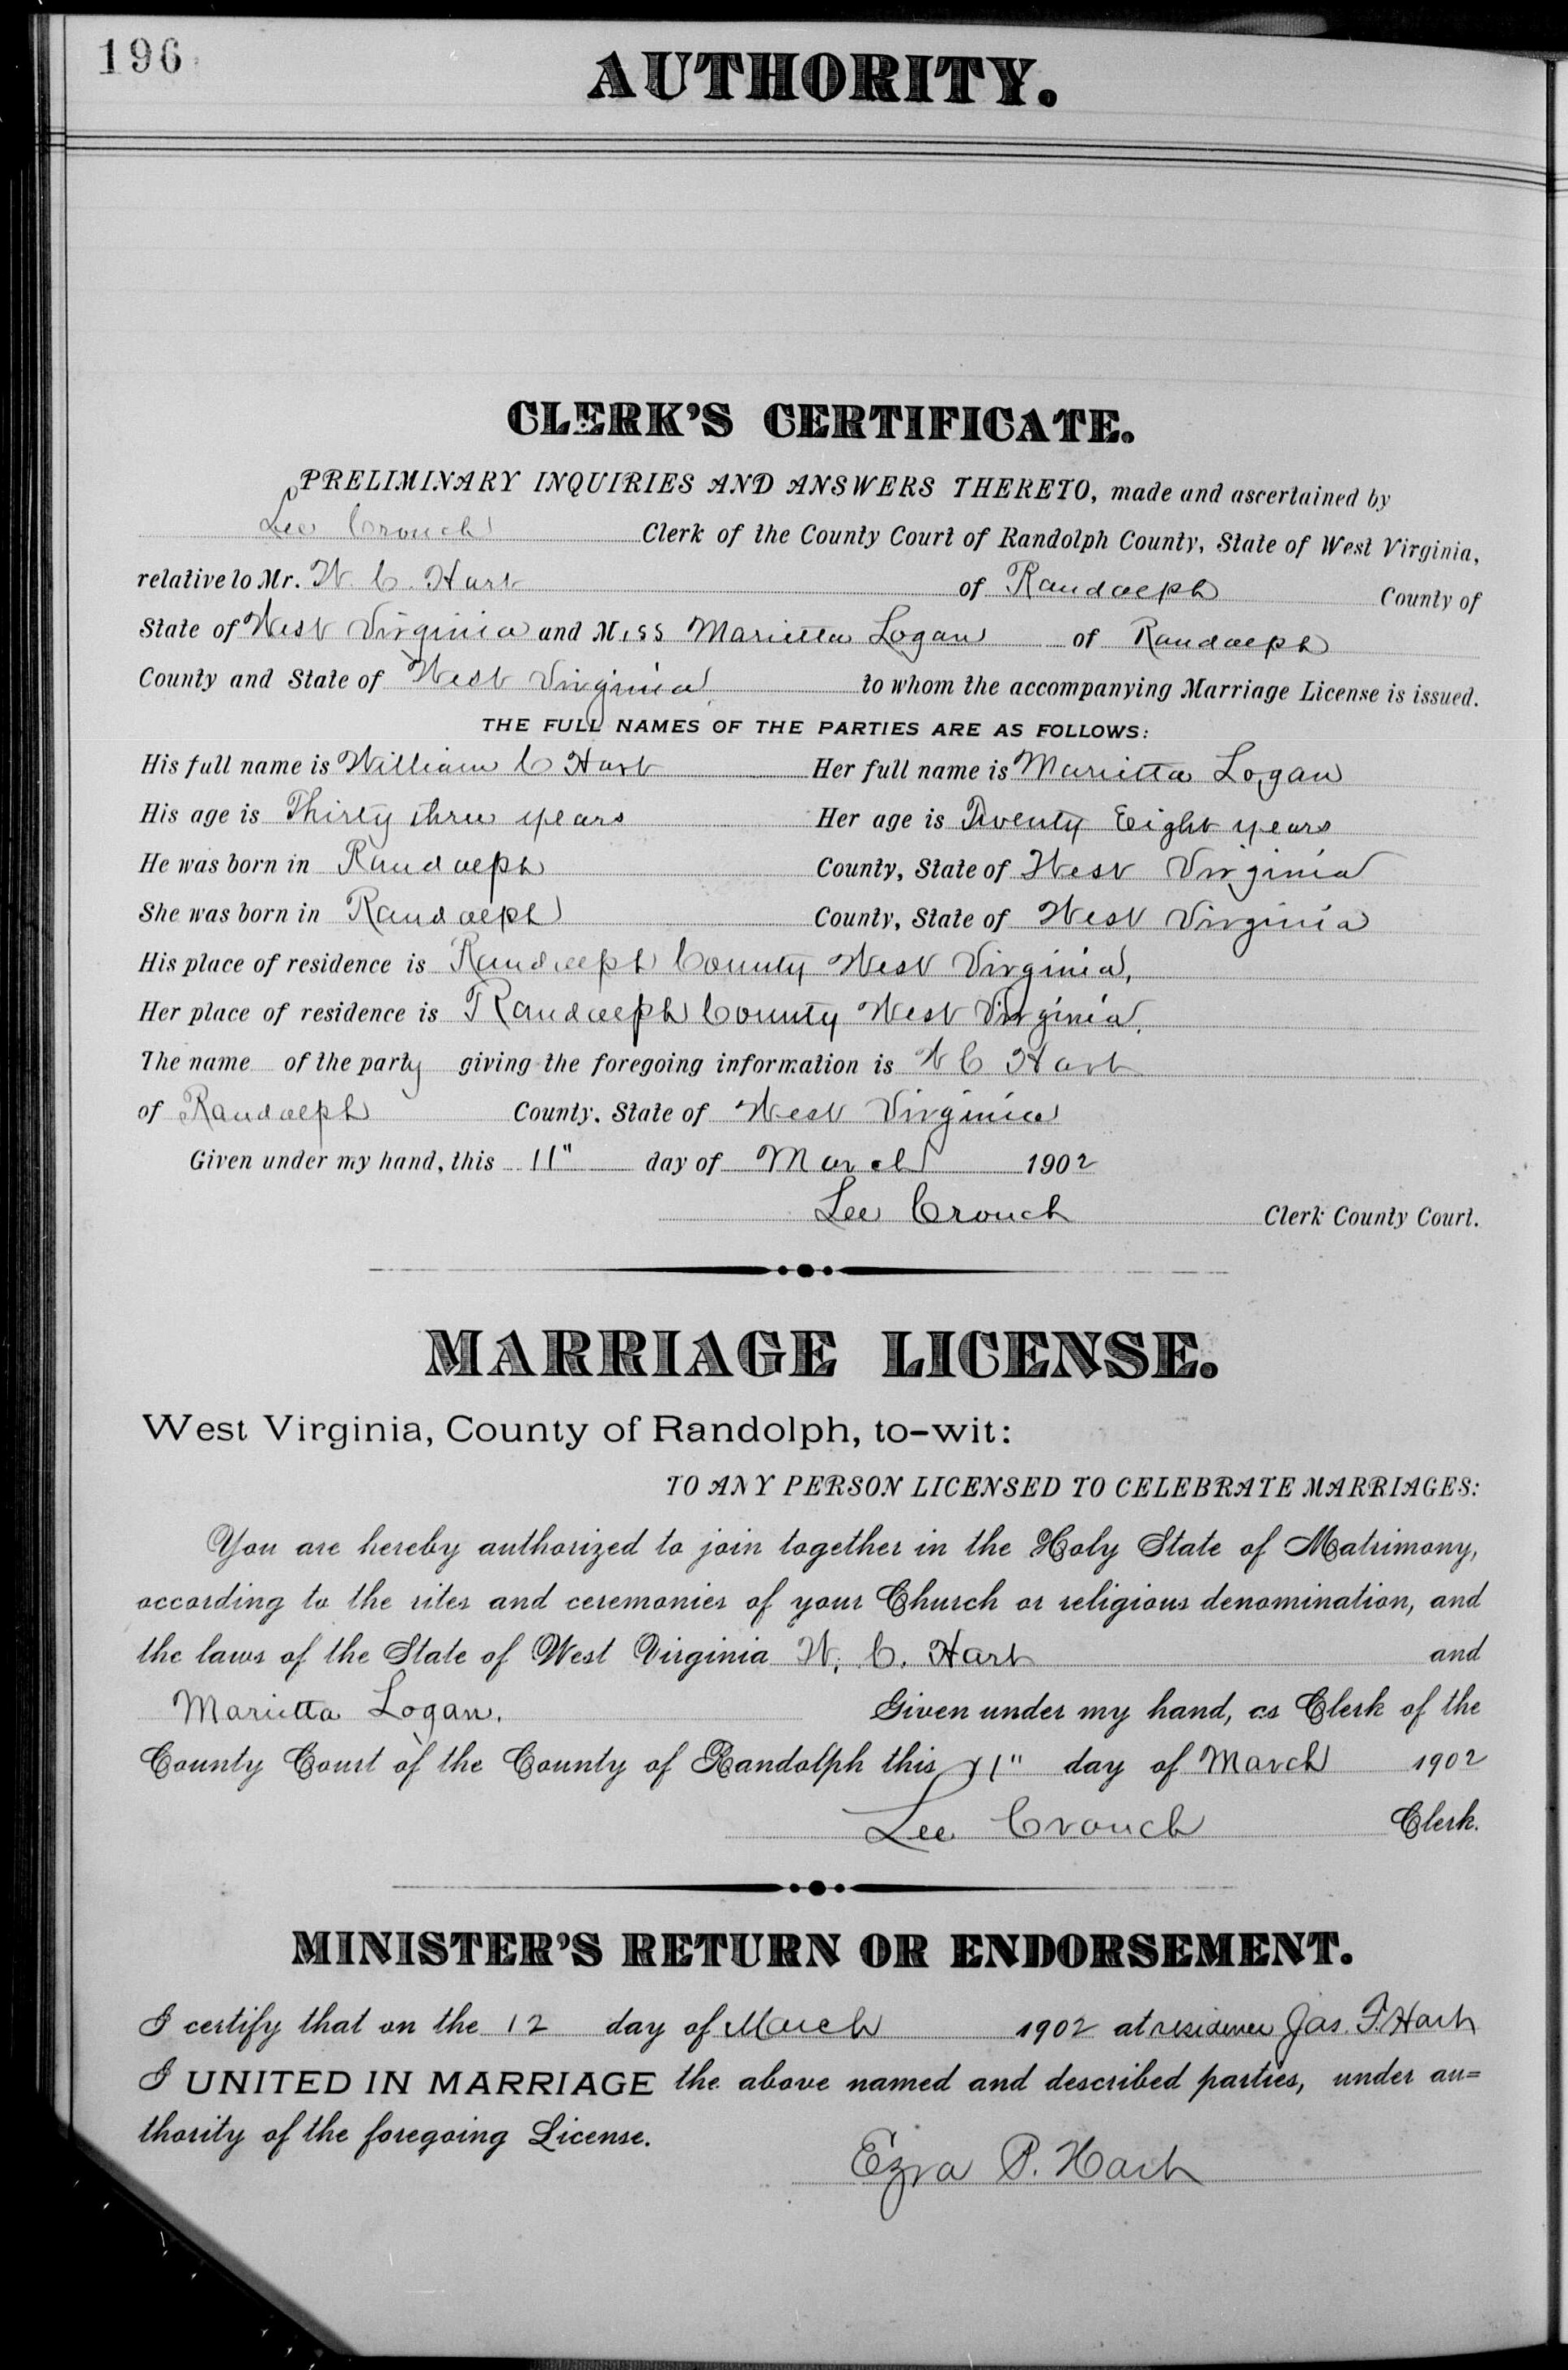 196
AUTHORITY.
CLERK'S CERTIFICATE.
PRELIMINARY INQUIRIES AND ANSWERS THERETO, made and ascertained by
Lee Crouch Clerk of the County Court of Randolph County, State of West Virginia,
relative to Mr. W. C. Hart of Randolph County of
State of West Virginia and Miss Marietta Logan of Randolph
County and State of West Virginia to whom the accompanying Marriage License is issued.
THE FULL NAMES OF THE PARTIES ARE AS FOLLOWS:
His full name is William C Hart Her full name is Marietta Logan
His age is Thirty three years Her age is Twenty Eight years
He was born in Randolph County, State of West Virginia
She was born in Randolph County, State of West Virginia
His place of residence is Randolph County West Virginia,
Her place of residence is Randolph County West Virginia.
The name of the party giving the foregoing information is W C Hart
of Randolph County, State of West Virginia
Given under my hand, this 11" day of March 1902
Lee Crouch Clerk County Court.
MARRIAGE LICENSE.
West Virginia, County of Randolph, to-wit:
TO ANY PERSON LICENSED TO CELEBRATE MARRIAGES:
You are hereby authorized to join together in the Holy State of Matrimony,
according to the rites and ceremonies of your Church or religious denomination, and
the laws of the State of West Virginia W. C. Hart and
Marietta Logan. Given under my hand, as Clerk of the
County Court of the County of Randolph this 11" day of March 1902
Lee Crouch Clerk.
MINISTER'S RETURN OR ENDORSEMENT.
I certify that on the 12 day of March 1902 at residence Jas. F. Hart
I UNITED IN MARRIAGE the above named and described parties, under au=
thority of the foregoing License.
Ezra P. Hart